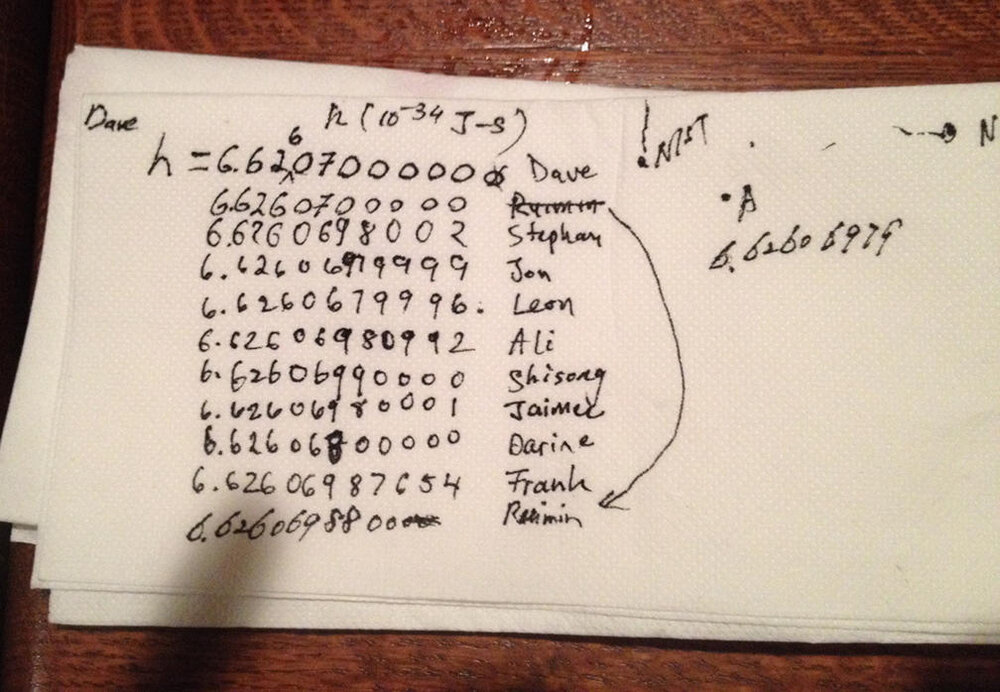 Dave
h (10-34 J-s)
h = 6.6260700000 Dave
6.6260700000 Ruimin
6.6260698002 Stephan
6.6260697999 Jon
6.6260679996. Leon
6.62606980992 Ali
6.62606990000 Shisong
6.62606980001 Jaimex
6.6260680000 Darine
6.62606987654 Frank
6.6260698800 Ruimin
NIST
N
A
6.62606979